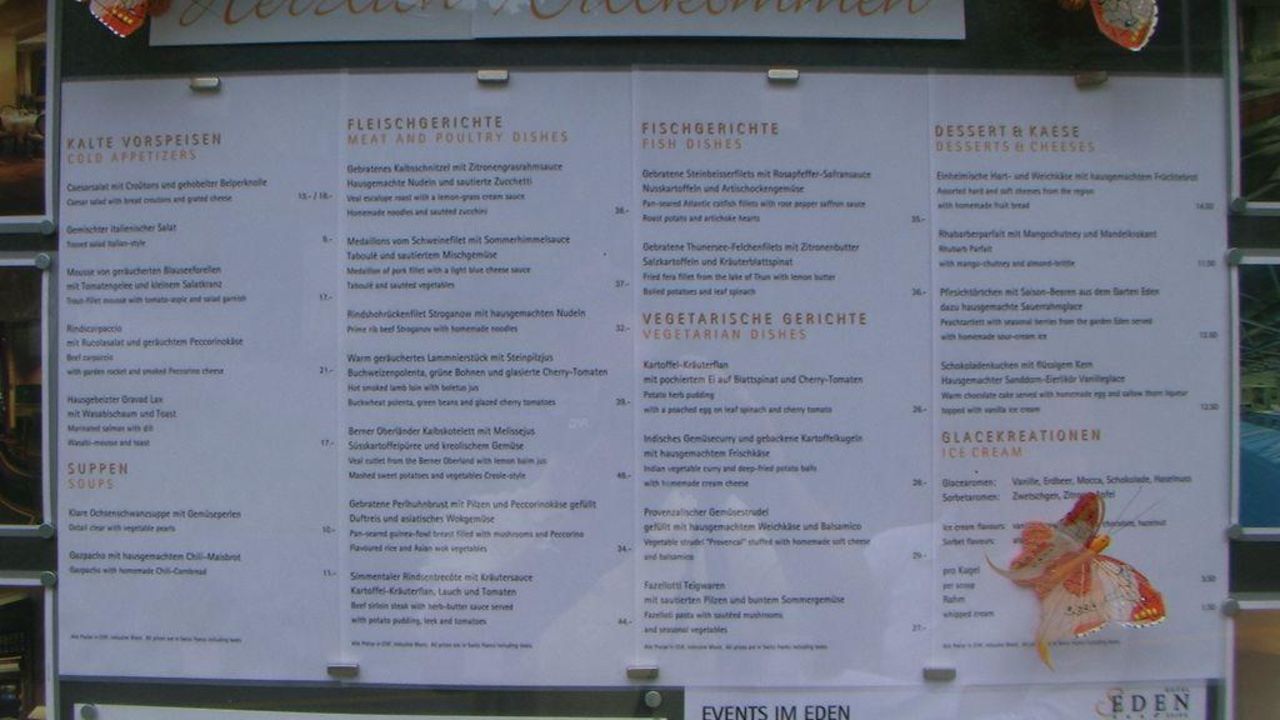 Herzlich Willkommen
KALTE VORSPEISEN
COLD APPETIZERS
Caesarsalat mit Croûtons und gehobelter Belperknolle
Caesar salad with bread croutons and grated cheese
Gemischter italienischer Salat
Tossed salad Italian-style
9.-
Mousse von geräucherten Blauseeforellen
mit Tomatengelee und kleinem Salatkranz
Trout-fillet mousse with tomato-aspic and salad garnish
17.-
Rindscarpaccio
mit Rucolasalat und geräuchtem Peccorinokäse
Beef carpaccio
with garden rocket and smoked Peccorino cheese
21.-
Hausgebeizter Gravad Lax
mit Wasabischaum und Toast
Marinated salmon with dill
Wasabi-mousse and toast
17.-
SUPPEN
SOUPS
Klare Ochsenschwanzsuppe mit Gemüseperlen
Oxtail clear with vegetable pearls
10.-
Gazpacho mit hausgemachtem Chili-Maisbrot
Gazpacho with homemade Chili-Cornbread
11.-
Alle Preise in CHF, inklusive Mwst. All prices are in Swiss francs including taxes.
FLEISCHGERICHTE
MEAT AND POULTRY DISHES
Gebratenes Kalbsschnitzel mit Zitronengrasrahmsauce
Hausgemachte Nudeln und sautierte Zucchetti
Veal escalope roast with a lemon-grass cream sauce
Homemade noodles and sautéed zucchini
38.-
Medaillons vom Schweinefilet mit Sommerhimmelsauce
Taboulé und sautiertem Mischgemüse
Medaillon of pork fillet with a light blue cheese sauce
Taboulé and sautéed vegetables
37.-
Rindshohrückenfilet Stroganow mit hausgemachten Nudeln
Prime rib beef Stroganow with homemade noodles
32.-
Warm geräuchertes Lammnierstück mit Steinpilzjus
Buchweizenpolenta, grüne Bohnen und glasierte Cherry-Tomaten
Hot smoked lamb loin with boletus jus
Buckwheat polenta, green beans and glazed cherry tomatoes
39.-
Berner Oberländer Kalbskotelett mit Melissejus
Süsskartoffelpüree und kreolischem Gemüse
Veal cutlet from the Berner Oberland with lemon balm jus
Mashed sweet potatoes and vegetables Creole-style
46.-
Gebratene Perlhuhnbrust mit Pilzen und Peccorinokäse gefüllt
Duftreis und asiatisches Wokgemüse
Pan-seared guinea-fowl breast filled with mushrooms and Peccorino
Flavoured rice and Asian wok vegetables
34.-
Simmentaler Rindsentrecôte mit Kräutersauce
Kartoffel-Kräuterflan, Lauch und Tomaten
Beef sirloin steak with herb-butter sauce served
with potato pudding, leek and tomatoes
44.-
Alle Preise in CHF, inklusive Mwst. All prices are in Swiss francs including taxes.
FISCHGERICHTE
FISH DISHES
Gebratene Steinbeisserfilets mit Rosapfeffer-Safransauce
Nusskartoffeln und Artischockengemüse
Pan-seared Atlantic catfish fillets with rose pepper saffron sauce
Roast potato and artichoke hearts
35.-
Gebratene Thunersee-Felchenfilets mit Zitronenbutter
Salzkartoffeln und Kräuterblattspinat
Fried fera fillet from the lake of Thun with lemon butter
Boiled potatoes and leaf spinach
36.-
VEGETARISCHE GERICHTE
VEGETARIAN DISHES
Kartoffel-Kräuterflan
mit pochiertem Ei auf Blattspinat und Cherry-Tomaten
Potato herb pudding
with a poached egg on leaf spinach and cherry tomato
26.-
Indisches Gemüsecurry und gebackene Kartoffelkugeln
mit hausgemachtem Frischkäse
Indian vegetable curry and deep-fried potato balls
with homemade cream cheese
28.-
Provenzalischer Gemüsestrudel
gefüllt mit hausgemachtem Weichkäse und Balsamico
Vegetable strudel "Provencal" stuffed with homemade soft cheese
and balsamico
29.-
Fazellotti Teigwaren
mit sautierten Pilzen und buntem Sommergemüse
Fazelloti pasta with sautéed mushrooms
and seasonal vegetables
27.-
Alle Preise in CHF, inklusive Mwst. All prices are in Swiss francs including taxes.
DESSERT & KAESE
DESSERTS & CHEESES
Einheimische Hart- und Weichkäse mit hausgemachtem Früchtebrot
Assorted hard and soft cheeses from the region
with homemade fruit bread
14.50
Rhabarberparfait mit Mangochutney und Mandelkrokant
Rhubarb Parfait
with mango-chutney and almond-brittle
11.50
Pfirsichtörtchen mit Saison-Beeren aus dem Garten Eden
dazu hausgemachte Sauerrahmglace
Peachtartlett with seasonal berries from the garden Eden served
with homemade sour-cream ice
13.50
Schokoladenkuchen mit flüssigem Kern
Hausgemachter Sanddorn-Eierlikör Vanilleglace
Warm chocolate cake served with homemade egg and sallow thorn liqueur
topped with vanilla ice cream
12.50
GLACEKREATIONEN
ICE CREAM
Glacearomen: Vanille, Erdbeer, Mocca, Schokolade, Haselnuss
Sorbetaromen: Zwetschgen,
Ice cream flavours: hazelnut
Sorbet flavours:
pro Kugel
per scoop
3.50
Rahm
whipped cream
1.50
EVENTS IM EDEN
EDEN